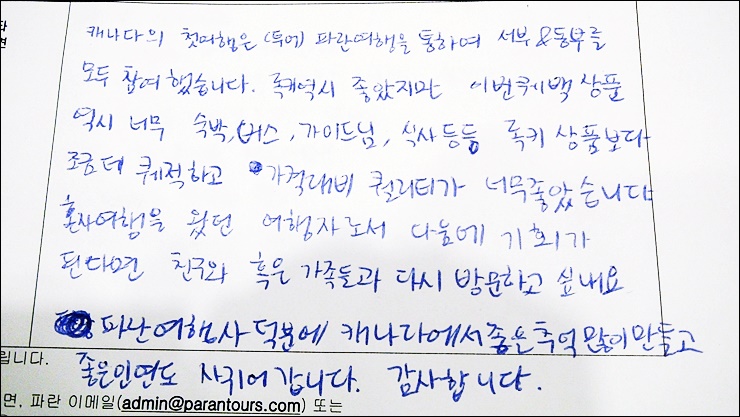 캐나다의 첫여행은 (투어) 파란여행을 통하여 서부&동부를
모두 참여했습니다. 록키역시 좋았지만 이번퀘백상품
역시 너무 숙박, 버스, 가이드님, 식사등등 록키 상품보다
조금데 퀘적하고 가격대비 퀄리티가 너무좋았습니다
혼자여행을 왔던 여행자로서 다음에 기회가
된다면 친구와 혹은 가족들과 다시 방문하고 싶내요
파란여행사 덕분에 캐나다에서 좋은추억많이만들고
좋은인연도 사귀어갑니다. 감사합니다.
립니다.
면, 파란 이메일(admin@parantours.com) 또는